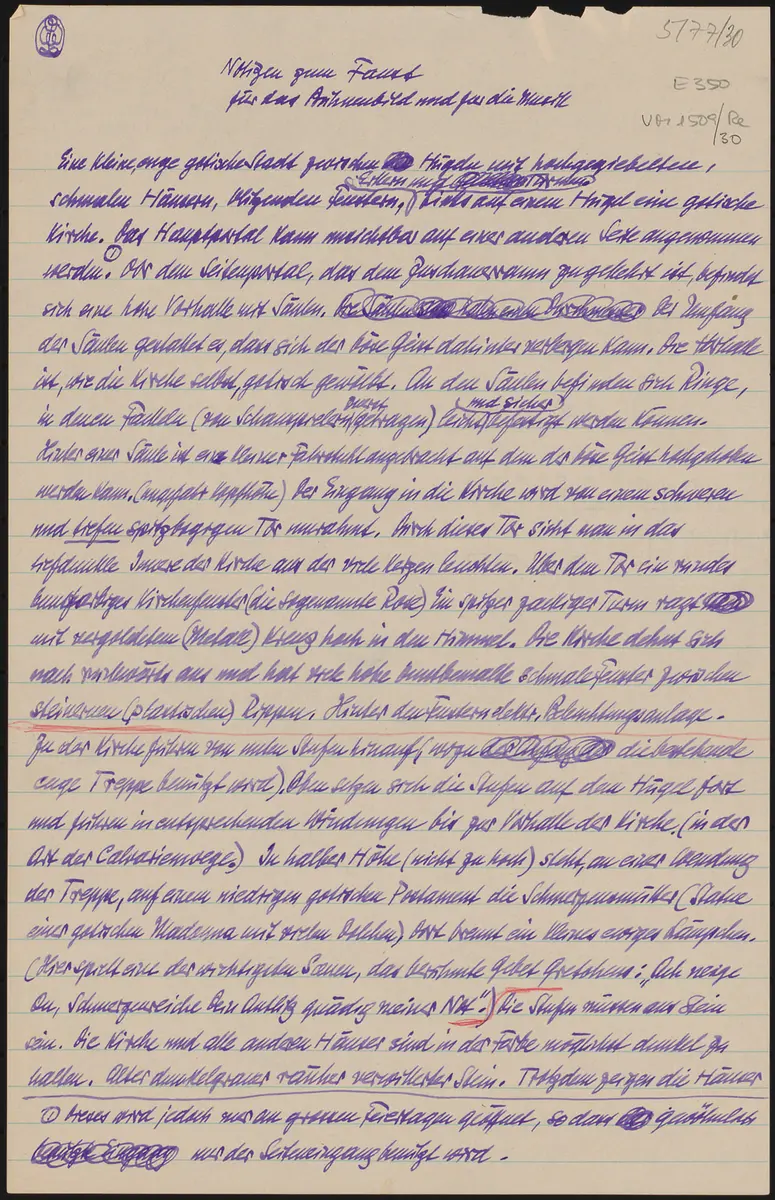 5177/30
E 350
VM 1509/Re
30
Notizen zum Faust
für das Bühnenbild und für die Musik
Eine kleine, enge gotische Stadt zwischen Hügeln mit hochgegiebelten,
Erkern und
schmalen Häusern, blitzenden Fenstern, Links auf einem Hügel eine gotische
Kirche. Das Hauptportal kann unsichtbar auf einer anderen Seite angenommen
werden. ① Vor dem Seitenportal, das dem Zuschauerraum zugekehrt ist, befindet
sich eine hohe Vorhalle mit Säulen. Der Umfang
der Säulen gestattet es, dass sich der böse Geist dahinter verbergen kann. Die Vorhalle
ist, wie die Kirche selbst, gotisch gewölbt. An den Säulen befinden sich Ringe,
zuerst und sicher
in denen Fackeln (von Schauspielern getragen) leicht befestigt werden können.
Hinter einer Säule ist ein kleiner Fahrstuhl angebracht auf dem der böse Geist hochgehoben
werden kann. (ungefähr Kopfhöhe) Der Eingang in die Kirche wird von einem schweren
und tiefen spitzbogigen Tor umrahmt. Durch dieses Tor sieht man in das
tiefdunkle Innere der Kirche aus der viele Kerzen leuchten. Über dem Tor ein rundes
buntfarbiges Kirchenfenster (die sogenannte Rose) Ein spitzer zackiger Turm ragt
mit vergoldetem (Metall) Kreuz hoch in den Himmel. Die Kirche dehnt sich
nach rückwärts aus und hat viele hohe buntbemalte schmale Fenster zwischen
steinernen (plastischen) Rippen. Hinter den Fenstern elektr. Beleuchtungsanlage.
Zu der Kirche führen von unten Stufen hinauf (wozu die bestehende
enge Treppe benutzt wird), Oben setzen sich die Stufen auf dem Hügel fort
und führen in entsprechenden Windungen bis zur Vorhalle der Kirche. (in der
Art der Calvarienwege.) In halber Höhe (nicht zu hoch) steht, an einer Wendung
der Treppe, auf einem niedrigen gotischen Postament die Schmerzensmutter (Statue
einer gotischen Madonna mit vielen Dolchen) Dort brennt ein kleines ewiges Lämpchen.
(Hier spielt eine der wichtigsten Szenen, das berühmte Gebet Gretchens: „Ach neige
Du, Schmerzenreiche Dein Antlitz gnädig meiner Not".) Die Stufen müssen aus Stein
sein. Die Kirche und alle anderen Häuser sind in der Farbe möglichst dunkel zu
halten. Alter dunkelgrauer rauher verwitterter Stein. Trotzdem zeigen die Häuser
① Dieses wird jedoch nur an grossen Feiertagen geöffnet, so dass gewöhnlich
nur der Seiteneingang benutzt wird.